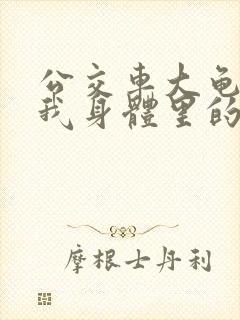 公交车大龟
我身體里的
摩根士丹利